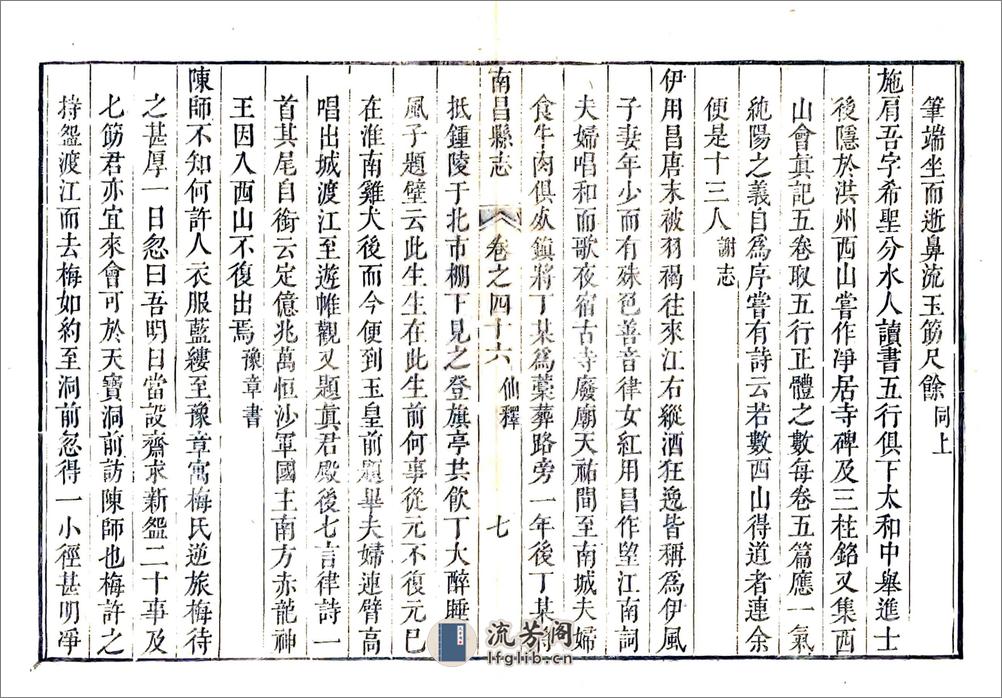 筆端坐而逝鼻流玉筯尺餘同上
施肩吾字希聖分水人讀書五行俱下太和中舉進士
後隱於洪州西山嘗作凈居寺碑及三柱銘又集西
山會眞記五卷取五行正體之數每卷五篇應一氣
純陽之義自爲序嘗有詩云若數西山得道者連余
便是十三人謝志
伊用昌唐末被羽褐往來江右縱酒狂逸皆稱爲伊風
子妻年少而有殊色善音律女紅用昌作望江南詞
夫婦唱和而歌夜宿古寺廢廟天祐間至南城夫婦
食牛肉俱死鎮將丁某爲藁葬路旁一年後丁某
南昌縣志
卷之四十六
仙釋
七
抵鍾陵于北市棚下見之登旗亭共飲丁大醉睡
風子題壁云此生生在此生前何事從元不復元已
在淮南雞犬後而今便到玉皇前題畢夫婦連臂高
唱出城渡江至遊帷觀又題眞君殿後七言律詩一
首其尾自銜云定億兆萬恒沙軍國主南方赤龍神
王因入西山不復出焉豫章書
陳師不知何許人衣服藍縷至豫章寓梅氏逆旅梅待
之甚厚一日忽曰吾明日當設齋求新盌二十事及
七筯君亦宜來會可於天寶洞前訪陳師也梅許之
持盌渡江而去梅如約至洞前忽得一小徑甚明凈
流芳阁
lfglib.cn